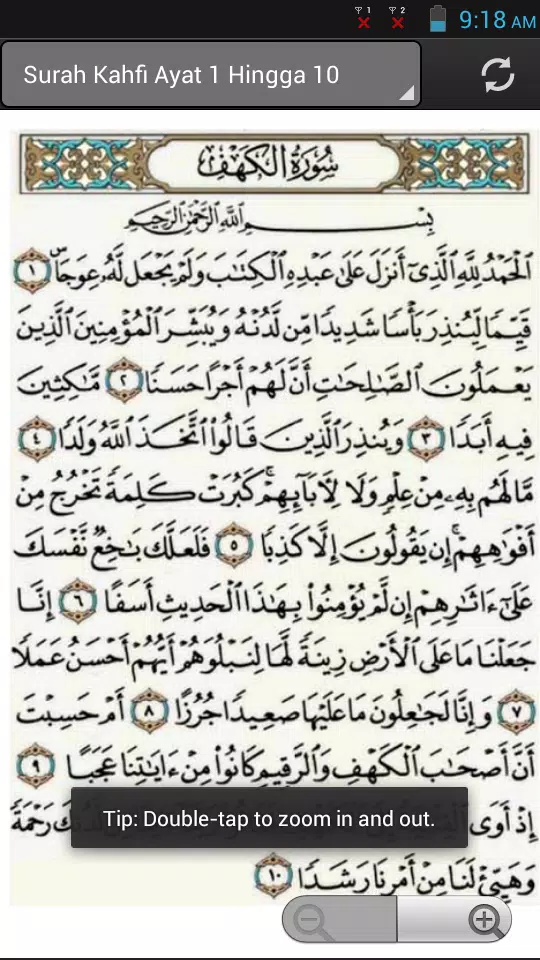 1 2 9:18 AM
Surah Kahfi Ayat 1 Hingga 10
سُورَةُ الكَهْفِ
بِسْمِ اللَّهِ الرَّحْمَٰنِ الرَّحِيمِ
الْحَمْدُ لِلَّهِ الَّذِي أَنزَلَ عَلَىٰ عَبْدِهِ الْكِتَابَ وَلَمْ يَجْعَل لَّهُ عِوَجًا ١
قَيِّمًا لِّيُنذِرَ بَأْسًا شَدِيدًا مِّن لَّدُنْهُ وَيُبَشِّرَ الْمُؤْمِنِينَ الَّذِينَ
يَعْمَلُونَ الصَّالِحَاتِ أَنَّ لَهُمْ أَجْرًا حَسَنًا ٢ مَّاكِثِينَ
فِيهِ أَبَدًا ٣ وَيُنذِرَ الَّذِينَ قَالُوا اتَّخَذَ اللَّهُ وَلَدًا ٤
مَّا لَهُم بِهِ مِنْ عِلْمٍ وَلَا لِآبَائِهِمْ ۚ كَبُرَتْ كَلِمَةً تَخْرُجُ مِنْ
أَفْوَاهِهِمْ ۚ إِن يَقُولُونَ إِلَّا كَذِبًا ٥ فَلَعَلَّكَ بَاخِعٌ نَّفْسَكَ
عَلَىٰ ءَاثَارِهِمْ إِن لَّمْ يُؤْمِنُوا بِهَٰذَا الْحَدِيثِ أَسَفًا ٦ إِنَّا
جَعَلْنَا مَا عَلَى الْأَرْضِ زِينَةً لَّهَا لِنَبْلُوَهُمْ أَيُّهُمْ أَحْسَنُ عَمَلًا
٧ وَإِنَّا لَجَاعِلُونَ مَا عَلَيْهَا صَعِيدًا جُرُزًا ٨ أَمْ حَسِبْتَ
أَنَّ أَصْحَابَ الْكَهْفِ وَالرَّقِيمِ كَانُوا مِنْ ءَايَاتِنَا عَجَبًا ٩
إِذْ أَوَى رَحْمَةً
Tip: Double-tap to zoom in and out.
وَهَيِّئْ لَنَا مِنْ أَمْرِنَا رَشَدًا ١٠